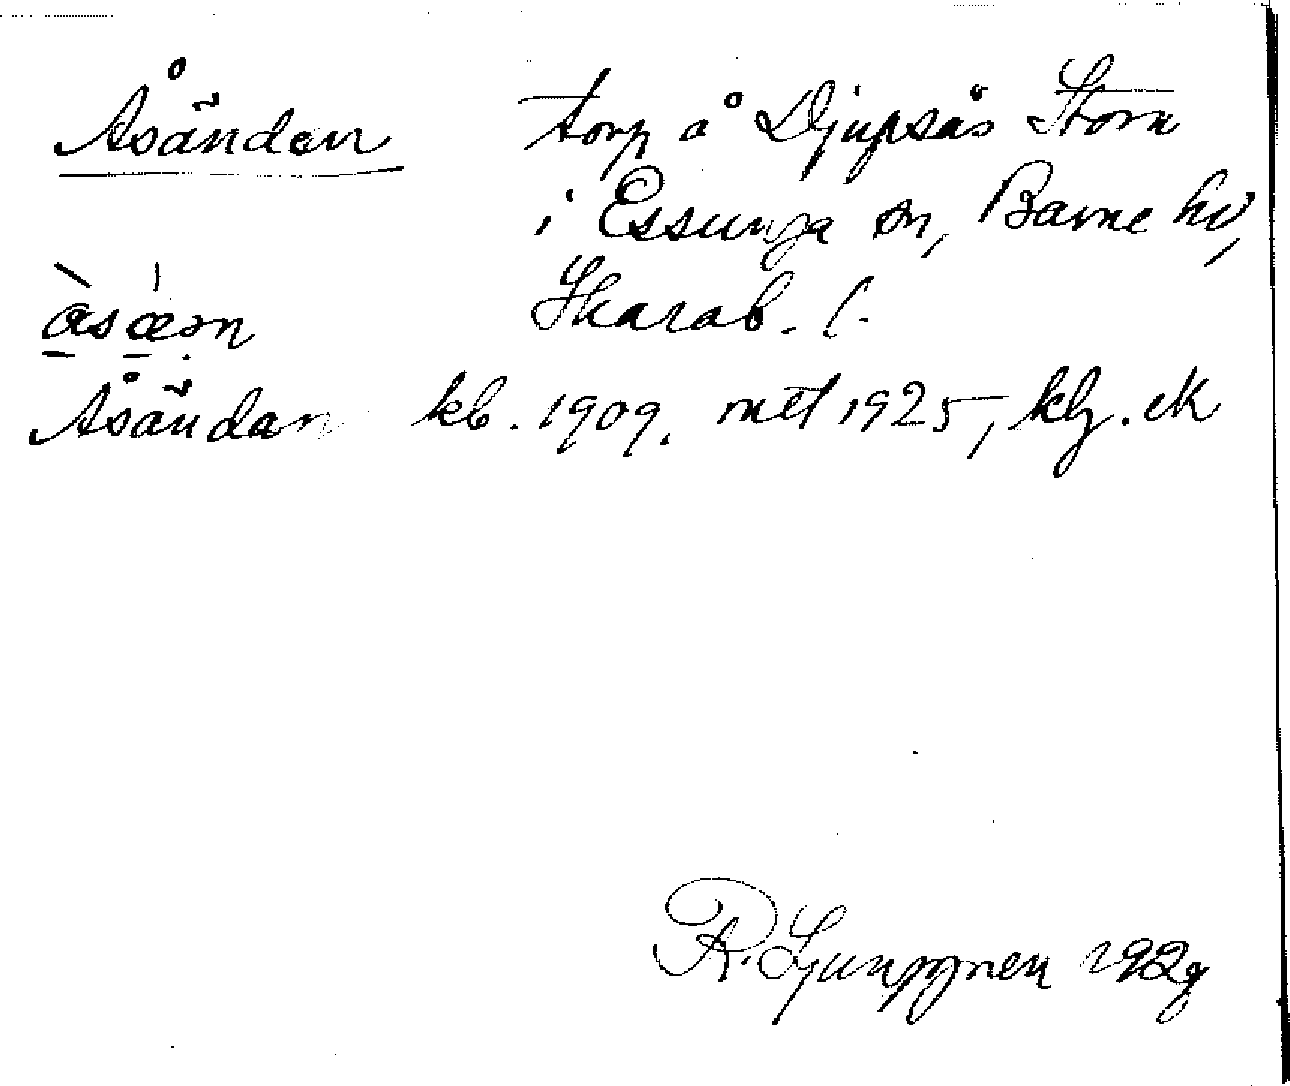 Åsänden torp å Djupsås Stom
i Essunga sn, Barne hd,
àsæ̀ən Skarab. l.
Åsändan kb. 1909. mtl 1925,
R. Ljunggren 1929